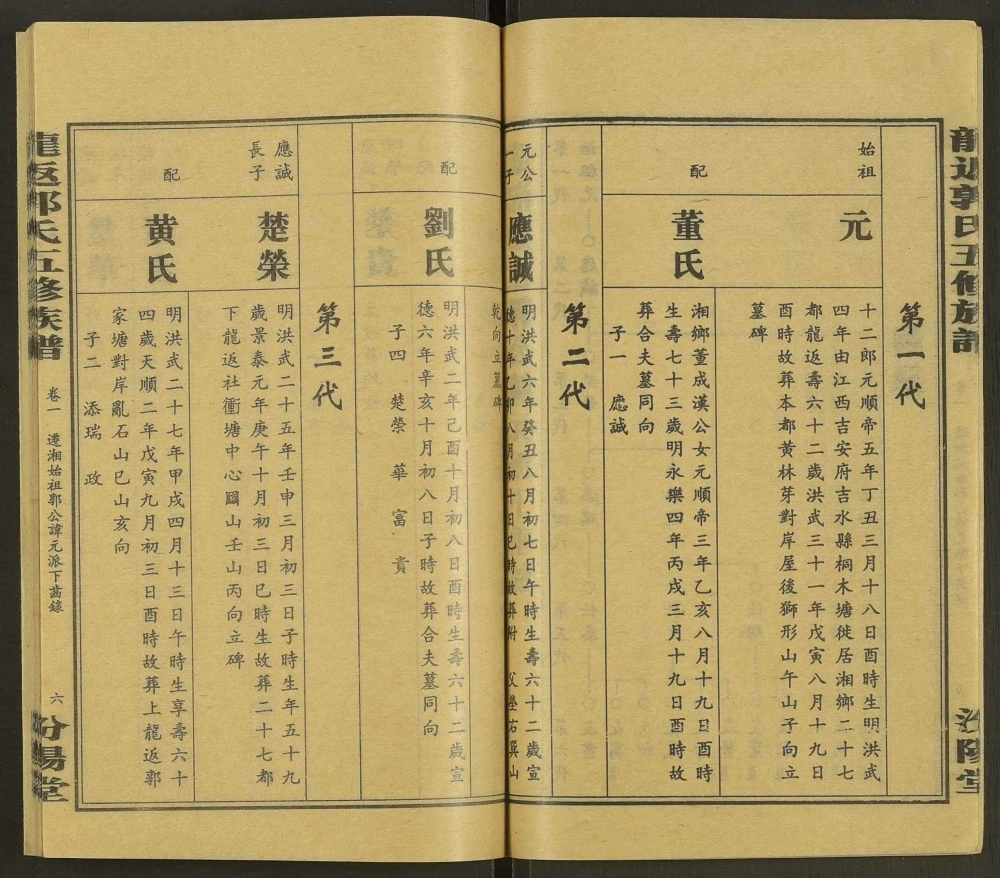 龍返郭氏五修族譜
汾陽堂
第一代
始祖
元
十二郎元順帝五年丁丑三月十八日酉時生明洪武
四年由江西吉安府吉水縣桐木塘徙居湘鄉二十七
都龍返壽六十二歲洪武三十一年戊寅八月十九日
酉時故葬本都黃林芽對岸屋後獅形山午山子向立
墓碑
配
董氏
湘鄉董成漢公女元順帝三年乙亥八月十九日酉時
生壽七十三歲明永樂四年丙戌三月十九日酉時故
葬合夫墓同向
子一 應誠
第二代
元公
一子
應誠
明洪武六年癸丑八月初七日午時生壽六十二歲宣
德十年乙卯八月初十日巳時故葬附 父塋右巽山
乾向立墓碑
配
劉氏
明洪武二年己酉十月初八日酉時生壽六十二歲宣
德六年辛亥十月初八日子時故葬合夫墓同向
子四 楚榮 華 富 貴
第三代
應誠
長子
楚榮
明洪武二十五年壬申三月初三日子時生年五十九
歲景泰元年庚午十月初三日巳時生故葬二十七都
下龍返社衝塘中心圝山壬山丙向立碑
配
黃氏
明洪武二十七年甲戌四月十三日午時生享壽六十
四歲天順二年戊寅九月初三日酉時故葬上龍返郭
家塘對岸亂石山巳山亥向
子二 添瑞 政
龍返郭氏五修族譜
卷一 遷湘始祖郭公諱元派下齒錄
六
汾陽堂